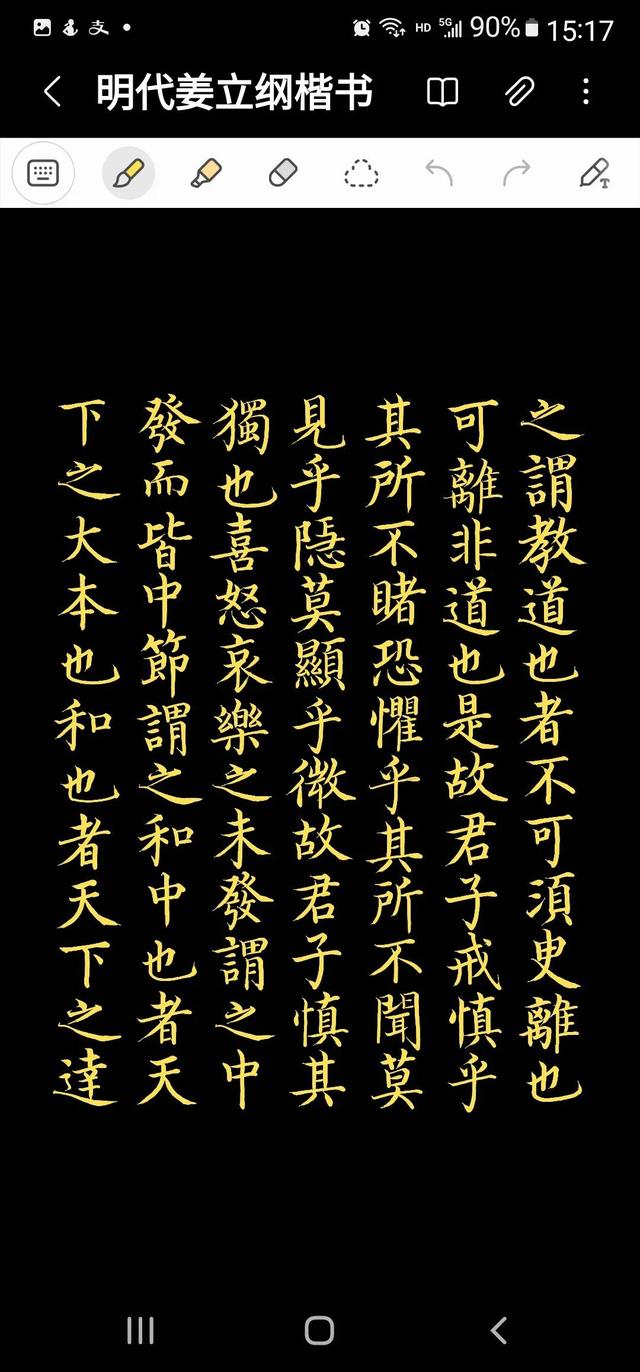 HD 5G 90% 15:17
明代姜立纲楷书
之謂教道也者不可須臾離也
可離非道也是故君子戒慎乎
其所不睹恐懼乎其所不聞莫
見乎隱莫顯乎微故君子慎其
獨也喜怒哀樂之未發謂之中
發而皆中節謂之和中也者天
下之大本也和也者天下之達